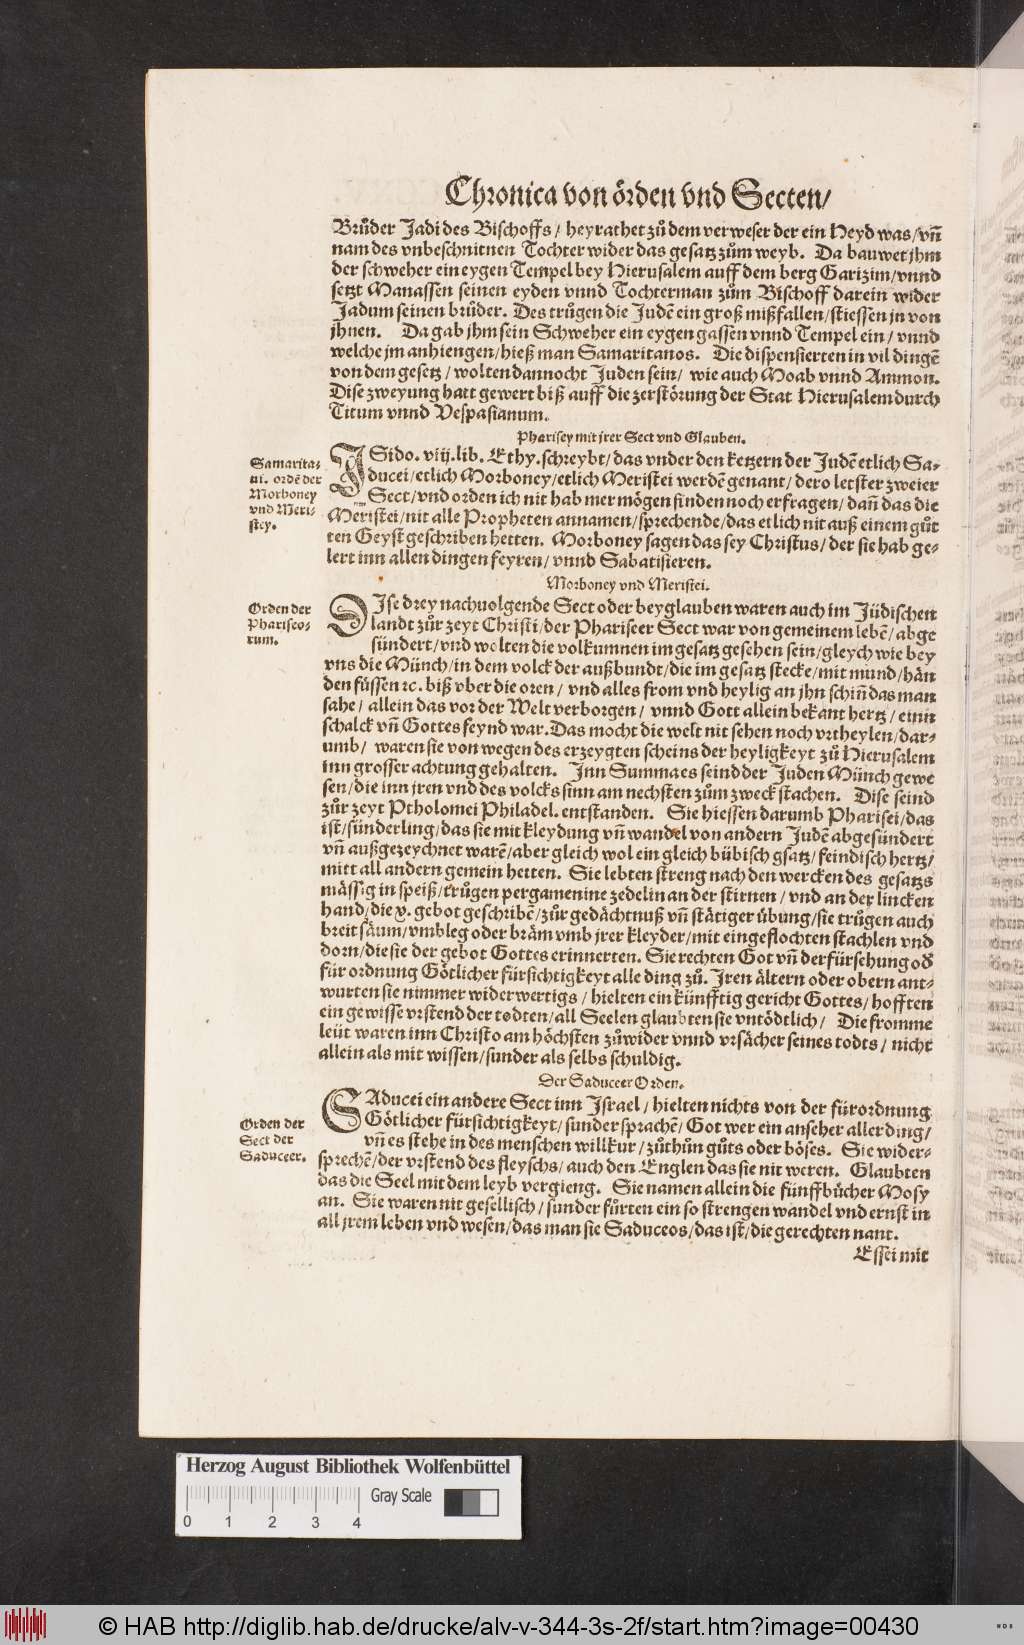 Chronica von oͤrden vnd Secten/
Bruͦder Jadi des Bischoffs / heyrathet zuͦ dem verweser der ein Heyd was/vñ
nam des vnbeschnitnen Tochter wider das gesatz zuͦm weyb. Da bauwet jhm
der schweher ein eygen Tempel bey Hierusalem auff dem berg Garizim/vnnd
setzt Manassen seinen eyden vnnd Tochterman zuͦm Bischoff darein wider
Jadum seinen bruͦder. Des truͦgen die Judẽ ein groß mißfallen/stiessen jn von
jhnen. Da gab jhm sein Schweher ein eygen gassen vnnd Tempel ein / vnnd
welche jm anhiengen/hieß man Samaritanos. Die dispensierten in vil dingẽ
von dem gesetz / wolten dannocht Juden sein/ wie auch Moab vnnd Ammon.
Dise zweyung hatt gewert biß auff die zerstoͤrung der Stat Hierusalem durch
Titum vnnd Vespasianum.
Pharisey mit jrer Sect vnd Glauben.
Samarita-
ni. ordẽ der
Morboney
vnd Meri-
stey.
ISido. viij. lib. Ethy. schreybt/das vnder den ketzern der Judẽ etlich Sa-
ducei/etlich Morboney/etlich Meristei werdẽ genant/ dero letster zweier
Sect/vnd orden ich nit hab mer moͤgen finden noch erfragen/ dañ das die
Meristei/nit alle Propheten annamen/sprechende/das etlich nit auß einem guͦt
ten Geyst geschriben hetten. Morboney sagen das sey Christus/der sie hab ge-
lert inn allen dingen feyren/ vnnd Sabatisieren.
Morboney vnd Meristei.
Orden der
Phariseo-
rum.
DIse drey nachuolgende Sect oder beyglauben waren auch im Juͤdischen
landt zuͦr zeyt Christi/der Phariseer Sect war von gemeinem lebẽ/abge
suͤndert/vnd wolten die volkumnen im gesatz gesehen sein/gleych wie bey
vns die Muͤnch/in dem volck der außbundt/die im gesatz stecke/mit mund/haͤn
den fuͤssen ꝛc. biß vber die oren/ vnd alles from vnd heylig an jhn schiñ das man
sahe/ allein das vor der Welt verborgen / vnnd Gott allein bekant hertz/ einn
schalck vñ Gottes feynd war. Das mocht die welt nit sehen noch vrtheylen/dar-
umb/ waren sie von wegen des erzeygten scheins der heyligkeyt zuͦ Hierusalem
inn grosser achtung gehalten. Inn Summa es seind der Juden Muͤnch gewe
sen/die inn jren vnd des volcks sinn am nechsten zuͦm zweck stachen. Dise seind
zuͦr zeyt Ptholomei Philadel. entstanden. Sie hiessen darumb Pharisei/das
ist/suͤnderling/das sie mit kleydung vñ wandel von andern Judẽ abgesuͤndert
vñ außgezeychnet warẽ/aber gleich wol ein gleich buͤbisch gsatz/feindisch hertz/
mitt all andern gemein hetten. Sie lebten streng nach den wercken des gesatzs
maͤssig in speiß/truͦgen pergamenine zedelin an der stirnen / vnd an der lincken
hand/die x. gebot geschribẽ/zuͦr gedaͤchtnuß vñ staͤtiger uͤbung/sie truͦgen auch
breit saͤum/vmbleg oder braͤm vmb jrer kleyder/mit eingeflochten stachlen vnd
dorn/die sie der gebot Gottes erinnerten. Sie rechten Got vñ der fuͤrsehung oď
fuͤrordnung Goͤtlicher fuͤrsichtigkeyt alle ding zuͦ. Iren aͤltern oder obern ant-
wurten sie nimmer widerwertigs / hielten ein kuͤnfftig gericht Gottes/ hofften
ein gewisse vrstend der todten/all Seelen glaubten sie vntoͤdtlich/ Die fromme
leuͤt waren inn Christo am hoͤchsten zuͦwider vnnd vrsaͤcher seines todts / nicht
allein als mit wissen/sunder als selbs schuldig.
Der Saduceer Orden.
Orden der
Sect der
Saduceer.
SAducei ein andere Sect inn Israel / hielten nichts von der fuͤrordnung
Goͤtlicher fuͤrsichtigkeyt/sunder sprachẽ/ Got wer ein anseher aller ding/
vñ es stehe in des menschen willkur/ zuͦthuͦn guͦts oder boͤses. Sie wider-
sprechẽ/der vrstend des fleyschs/auch den Englen das sie nit weren. Glaubten
das die Seel mit dem leyb vergieng. Sie namen allein die fuͤnff buͤcher Mosy
an. Sie waren nit gesellisch / sunder fuͤrten ein so strengen wandel vnd ernst in
all jrem leben vnd wesen/das man sie Saduceos/das ist/die gerechten nant.
Essei mit
Herzog August Bibliothek Wolfenbüttel
Gray Scale
0 1 2 3 4
© HAB http://diglib.hab.de/drucke/alv-v-344-3s-2f/start.htm?image=00430